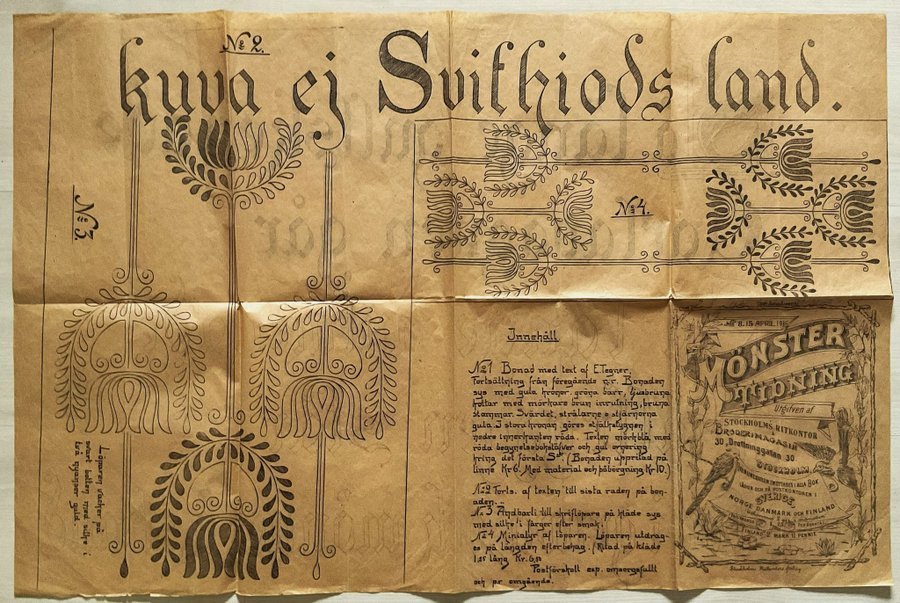 No 2.
kuva ej Svithiods land.
No 3.
No 4.
Löparen vacker på
svart botten med silke i
två nyanser guld.
Innehåll
No 1 Bonad med text af E Tegner.
Fortsättning från föregående nr. Bonaden
sys med gula kronor gröna barr, ljusbruna
kottar med mörkare brun inrutning, bruna
stammar. Svärdet, strålarne o stjärnorna
gula. I stora kronan göres stjälkstygnen i
nedre innerkanten röda. Texten mörkblå med
röda begynnelsebokstäfver och gul
kring det första S. Bonaden uppritad på
linne Kr 6. Med material och påbörgning Kr 10.
No 2 Forts. af texten till sista raden på bon-
aden.
No 3 till på kläde sys
med silke i färger efter smak.
No 4 af löparen. Löparen utdrag-
es på längden efter behag. Ritad på kläde
1.25 lång Kr. 6,50
Postförskott exp. omsorgsfullt
och pr omgående.
No 8. 15 APRIL
MÖNSTER
TIDNING
Utgifven af
STOCKHOLMS RITKONTOR
BRODERIMAGASIN
30, Drottninggatan 30
STOCKHOLM
SVERIGE
NORGE DANMARK OCH FINLAND